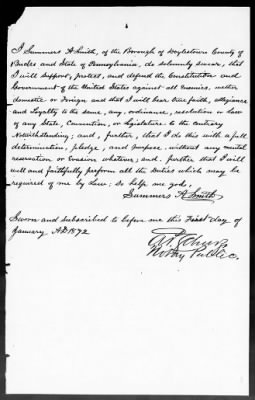 I Summers A Smith, of the Borough of Doylestown County of
Bucks and State of Pennsylvania, do solemnly swear, that
I will support, protect, and defend the Constitution and
Government of the United States against all Enemies, wether
domestic or Foreign and that I will bear true faith, allegiance
and Loyalty to the same, any, ordinance, resolution or Law
of any State, Convention, or Legislature to the contrary
Notwithstanding; and, further, that I do this with a full
determination, pledge, and purpose, without any mental
reservation or Evasion whatever; and, further that I will
well and faithfully perform all the Duties which may be
required of me by Law; So help me god.
Summers A Smith
Sworn and subscribed to before me this First day of
January AD 1872
Notary Public.